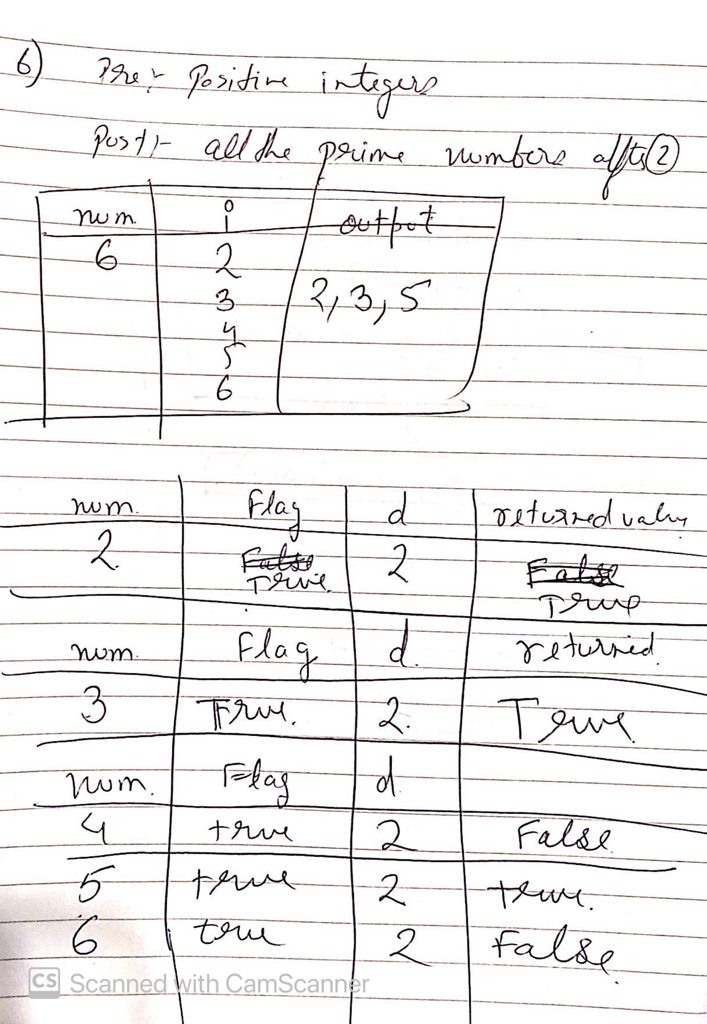 6) Pre:- Positive integers
Post:- all the prime numbers after 2
num i output
6 2
3 2, 3, 5
4
5
6
num. Flag d returned value
2. False 2 False
True True
num. Flag d. returned.
3 True. 2. True
num. Flag d
4 true 2 False
5 true 2 true.
6 true 2 False.
CS Scanned with CamScanner